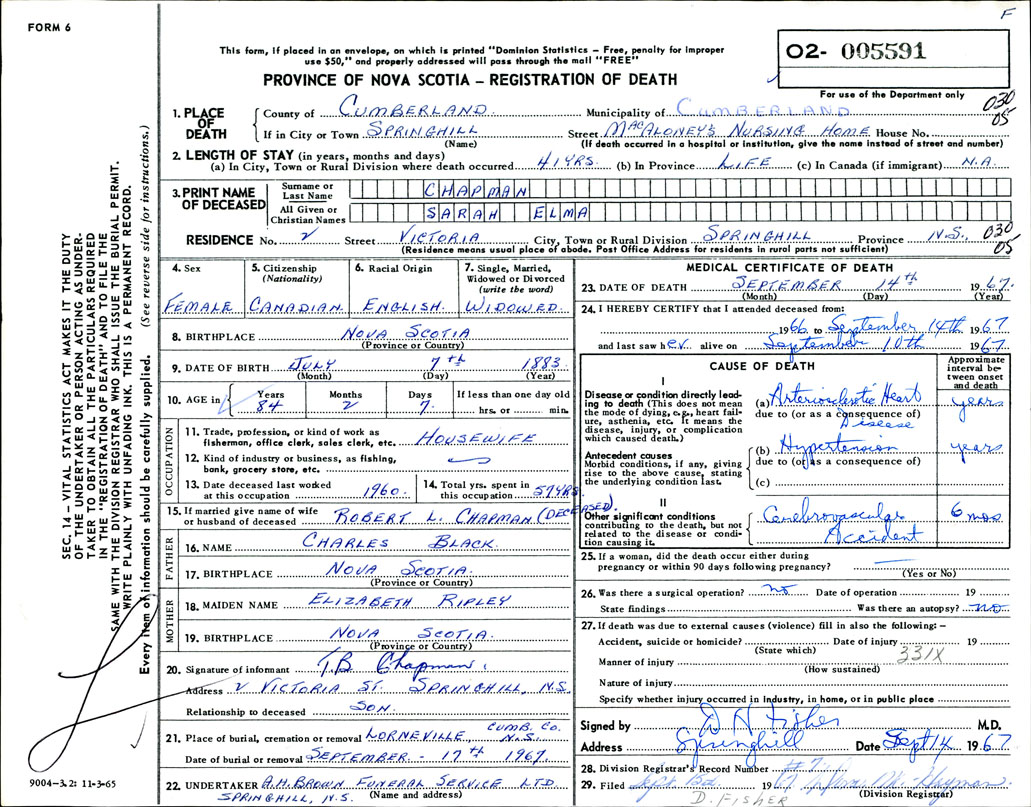 FORM 6
F
This form, if placed in an envelope, on which is printed "Dominion Statistics – Free, penalty for improper
use $50," and properly addressed will pass through the mail "FREE"
O2- 005591
PROVINCE OF NOVA SCOTIA – REGISTRATION OF DEATH
For use of the Department only
030
05
1. PLACE OF DEATH
County of CUMBERLAND. Municipality of CUMBERLAND
If in City or Town SPRINGHILL Street MACALONEY'S NURSING HOME House No.
(Name) (If death occurred in a hospital or institution, give the name instead of street and number)
2. LENGTH OF STAY (in years, months and days)
(a) In City, Town or Rural Division where death occurred 41 YRS. (b) In Province LIFE (c) In Canada (if immigrant) N.A.
3. PRINT NAME OF DECEASED
Surname or Last Name CHAPMAN
All Given or Christian Names SARAH ELMA
RESIDENCE No. 2 Street VICTORIA City, Town or Rural Division SPRINGHILL Province N.S. 030
05
(Residence means usual place of abode. Post Office Address for residents in rural parts not sufficient)
4. Sex
FEMALE
5. Citizenship (Nationality)
CANADIAN
6. Racial Origin
ENGLISH.
7. Single, Married, Widowed or Divorced (write the word)
WIDOWED
8. BIRTHPLACE NOVA SCOTIA
(Province or Country)
9. DATE OF BIRTH JULY 7th 1883
(Month) (Day) (Year)
10. AGE in Years 84 Months 2 Days 7 If less than one day old hrs. or min.
OCCUPATION
11. Trade, profession, or kind of work as
fisherman, office clerk, sales clerk, etc. HOUSEWIFE
12. Kind of industry or business, as fishing,
bank, grocery store, etc.
13. Date deceased last worked
at this occupation 1960.
14. Total yrs. spent in
this occupation 57 YRS.
15. If married give name of wife
or husband of deceased ROBERT L. CHAPMAN (DECEASED).
FATHER
16. NAME CHARLES BLACK.
17. BIRTHPLACE NOVA SCOTIA.
(Province or Country)
MOTHER
18. MAIDEN NAME ELIZABETH RIPLEY
19. BIRTHPLACE NOVA SCOTIA.
(Province or Country)
20. Signature of informant T.B. Chapman
Address 2 VICTORIA ST. SPRINGHILL, N.S.
Relationship to deceased SON.
21. Place of burial, cremation or removal LORNEVILLE CUMB. CO. N.S.
Date of burial or removal SEPTEMBER - 17th 1967
22. UNDERTAKER A.H. BROWN FUNERAL SERVICE LTD.
SPRINGHILL, N.S. (Name and address)
MEDICAL CERTIFICATE OF DEATH
23. DATE OF DEATH SEPTEMBER 14th 1967.
(Month) (Day) (Year)
24. I HEREBY CERTIFY that I attended deceased from:
1966 to September 14th 1967
and last saw her alive on September 10th 1967
CAUSE OF DEATH
Approximate interval between onset and death
I
Disease or condition directly leading to death (This does not mean the mode of dying, e.g., heart failure, asthenia, etc. It means the disease, injury, or complication which caused death.)
(a) Arteriosclerotic Heart years
due to (or as a consequence of) Disease
Antecedent causes
Morbid conditions, if any, giving rise to the above cause, stating the underlying condition last.
(b) Hypertension years
due to (or as a consequence of)
(c)
II
Other significant conditions contributing to the death, but not related to the disease or condition causing it.
Cerebrovascular 6 mos
Accident
25. If a woman, did the death occur either during
pregnancy or within 90 days following pregnancy?
(Yes or No)
26. Was there a surgical operation? no Date of operation 19
State findings Was there an autopsy? NO
27. If death was due to external causes (violence) fill in also the following: –
Accident, suicide or homicide? Date of injury 19
(State which) 331X
Manner of injury
(How sustained)
Nature of injury
Specify whether injury occurred in industry, in home, or in public place
Signed by D H Fisher M.D.
Address Springhill Date Sept 14 1967
28. Division Registrar's Record Number
29. Filed 19
D. FISHER (Division Registrar)
SEC. 14 – VITAL STATISTICS ACT MAKES IT THE DUTY
OF THE UNDERTAKER OR PERSON ACTING AS UNDER-
TAKER TO OBTAIN ALL THE PARTICULARS REQUIRED
IN THE "REGISTRATION OF DEATH" AND TO FILE THE
SAME WITH THE DIVISION REGISTRAR WHO SHALL ISSUE THE BURIAL PERMIT.
WRITE PLAINLY WITH UNFADING INK. THIS IS A PERMANENT RECORD.
Every item of information should be carefully supplied. (See reverse side for instructions.)
9004–3.2: 11-3-65